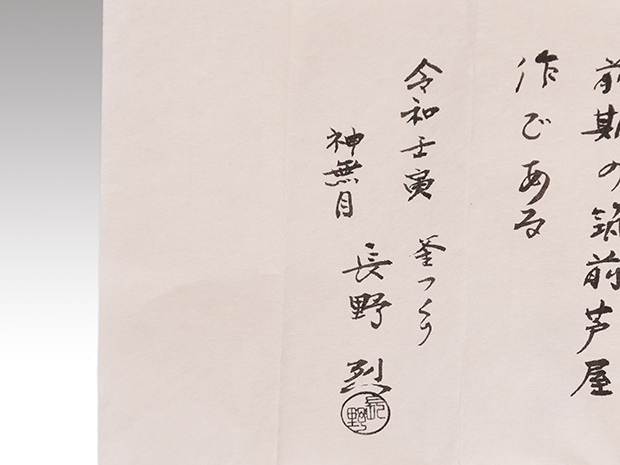 前期の筑前芦屋
作である
令和壬寅 釜つくり
神無月
長野 烈
長野